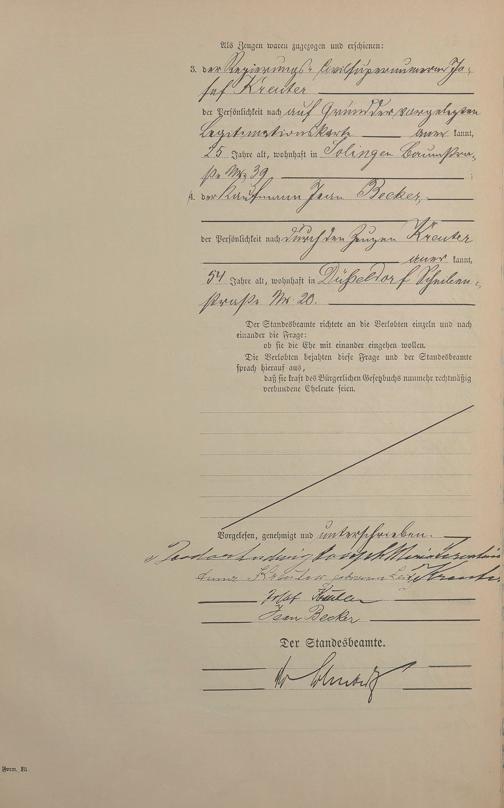 Als Zeugen waren zugezogen und erschienen:
3. der Regierungs-Civilsupernumerar Jo-
sef Kreuter
der Persönlichkeit nach auf Grund der vorgelegten
Legitimationskarte aner kannt,
25 Jahre alt, wohnhaft in Solingen Baumstra-
ße Nr. 39 ;
4. der Kaufmann Jean Becker,
der Persönlichkeit nach durch den Zeugen Kreuter
aner kannt,
54 Jahre alt, wohnhaft in Düsseldorf Scheiben-
straße Nr. 20.
Der Standesbeamte richtete an die Verlobten einzeln und nach
einander die Frage:
ob sie die Ehe mit einander eingehen wollen.
Die Verlobten bejahten diese Frage und der Standesbeamte
sprach hierauf aus,
daß sie kraft des Bürgerlichen Gesetzbuchs nunmehr rechtmäßig
verbundene Eheleute seien.
Vorgelesen, genehmigt und unterschrieben.
Ludwig Joseph Maria
Kreuter geborene Kreuter
Josef Kreuter
Jean Becker
Der Standesbeamte.
Form. BI.